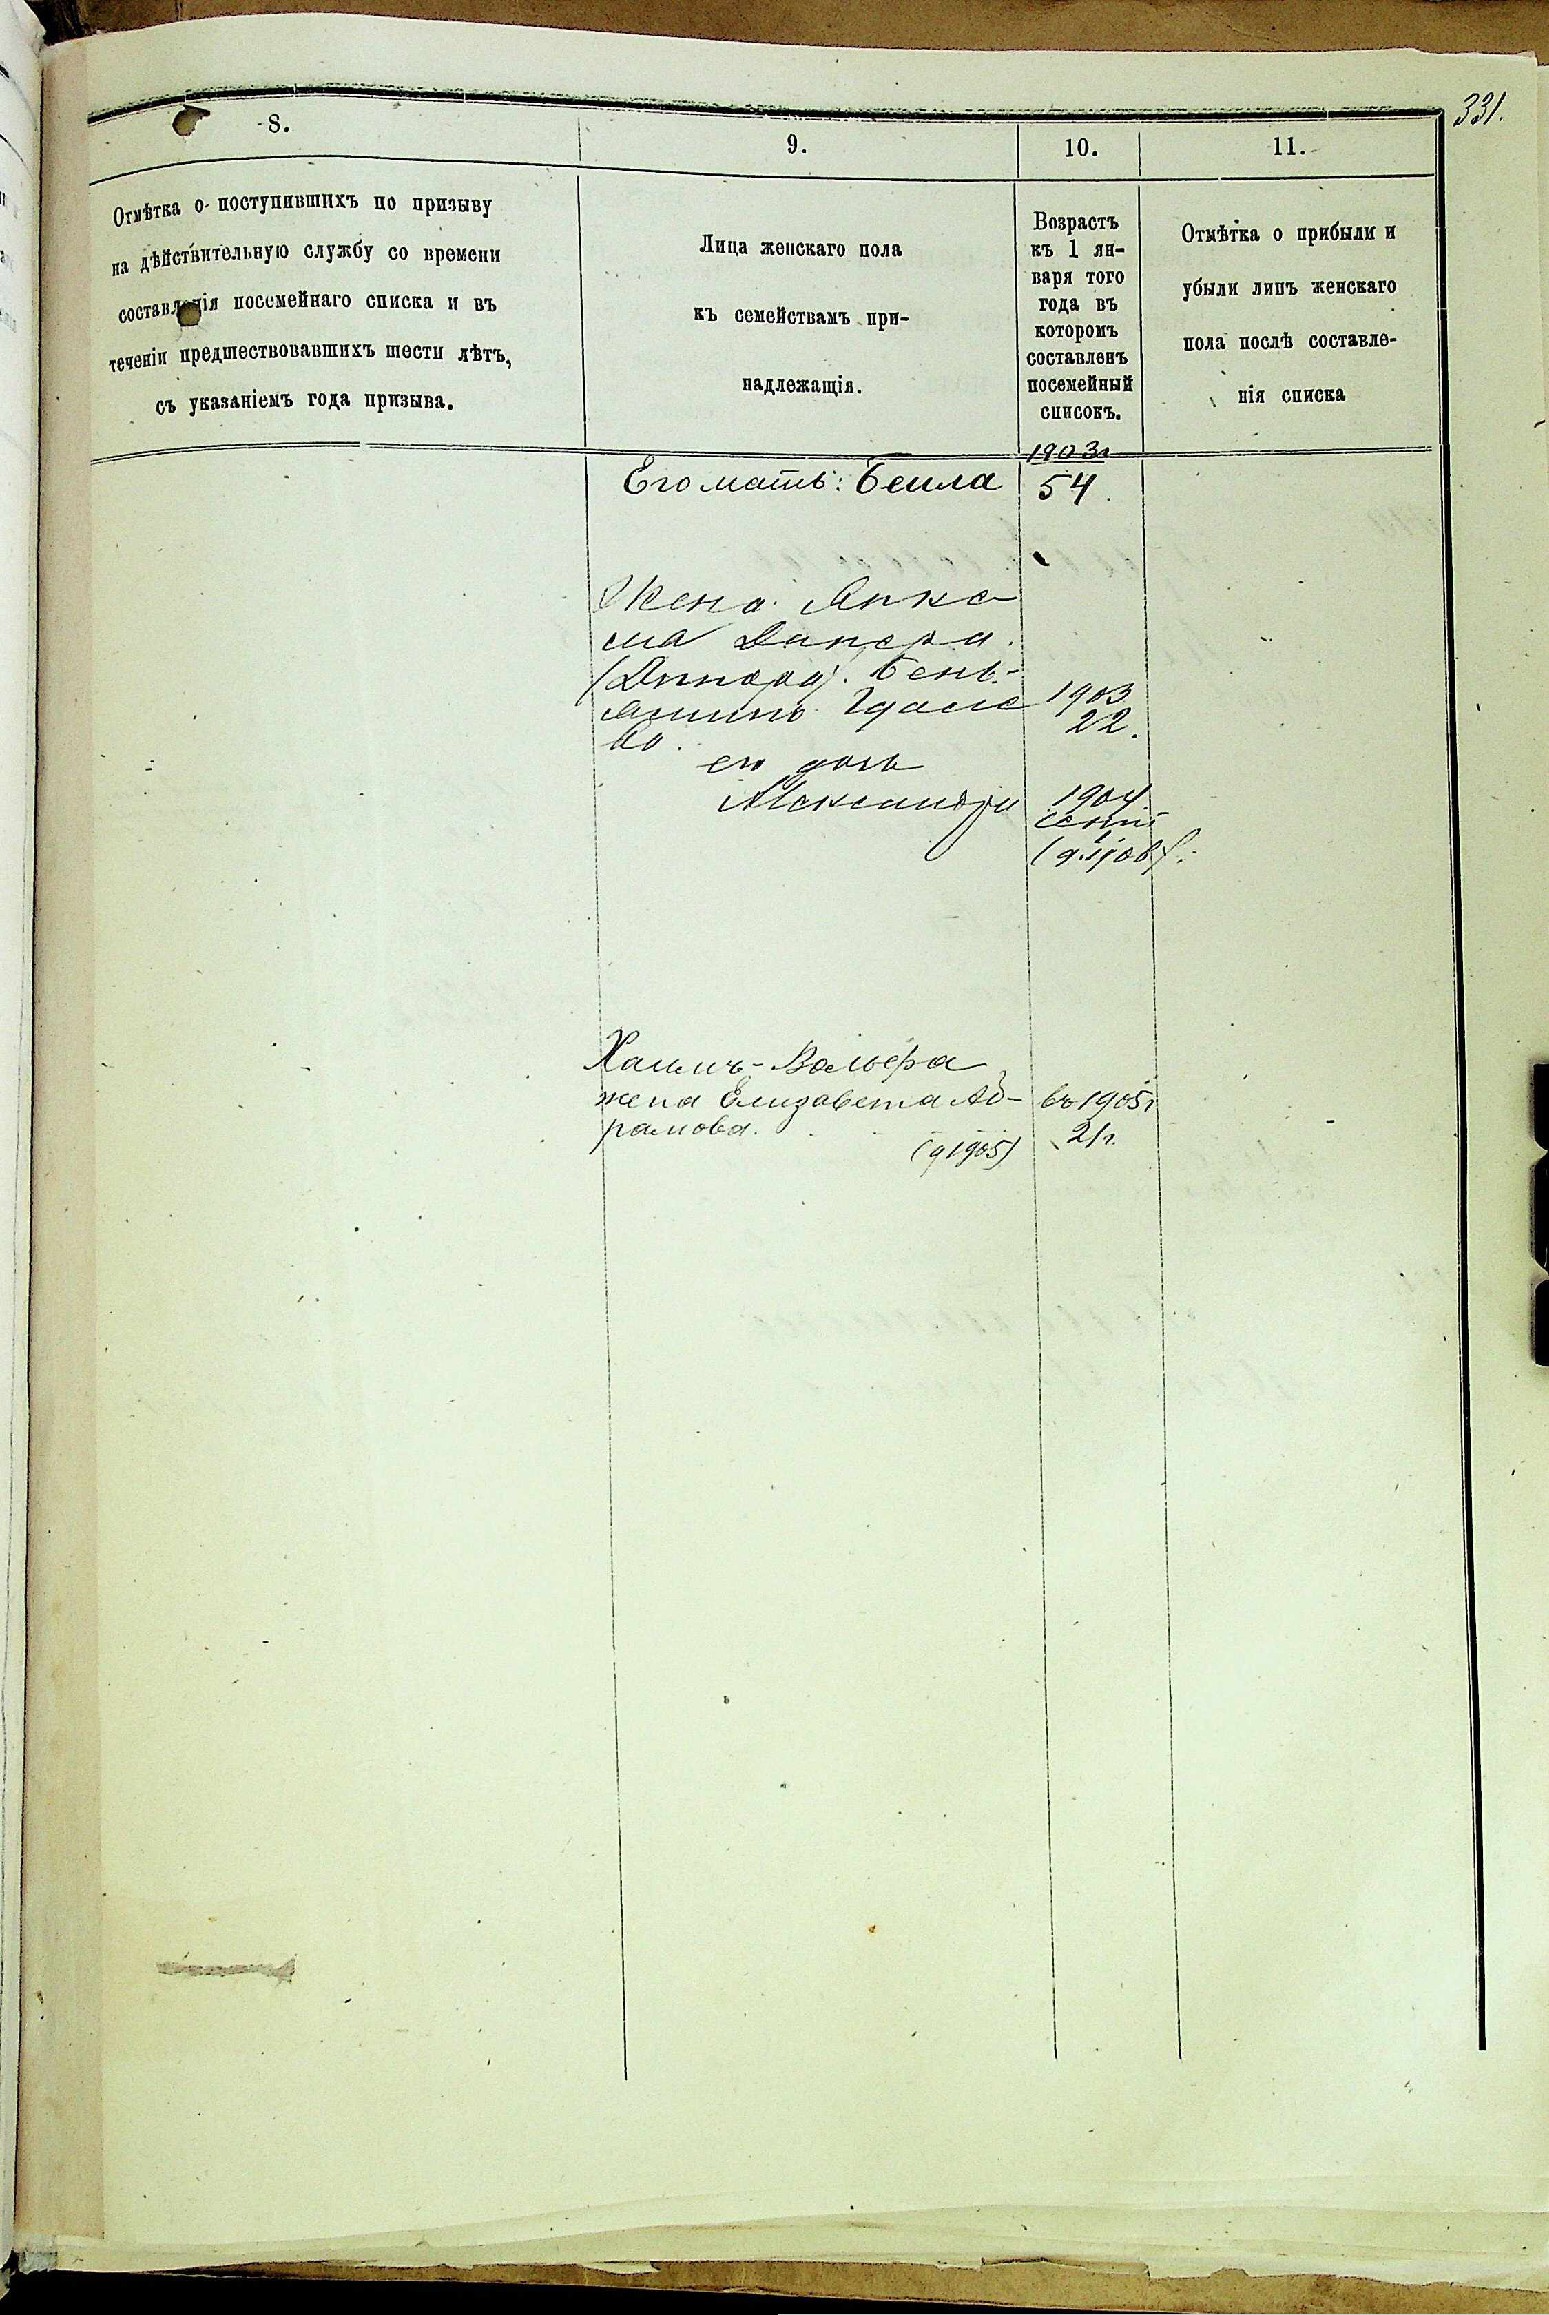 331.
8.
9.
10.
11.
Отмѣтка о поступившихъ по призыву
на дѣйствительную службу со времени
составленія посемейнаго списка и въ
теченіи предшествовавшихъ шести лѣтъ,
съ указаніемъ года призыва.
Лица женскаго пола
къ семействамъ при-
надлежащія.
Возрастъ
къ 1 ян-
варя того
года въ
которомъ
составленъ
посемейный
списокъ.
Отмѣтка о прибыли и
убыли лицъ женскаго
пола послѣ составле-
нія списка
1903г
Его мать: Беила 54
Жена
Бень-
1903
22.
его дочь
Александра 1904
Хаимъ-Вольфа
жена Елизавета Аб- въ 1905г
рамова. 21г.
(д 1905)